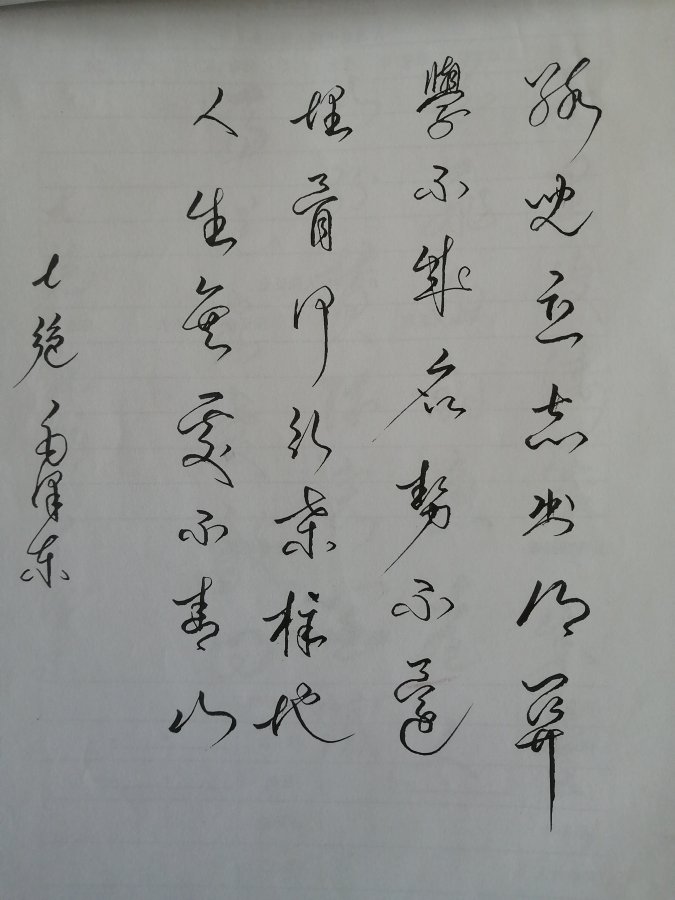 孩兒立志出鄉關
學不成名誓不還
埋骨何須桑梓地
人生無處不青山
七絕 毛澤東